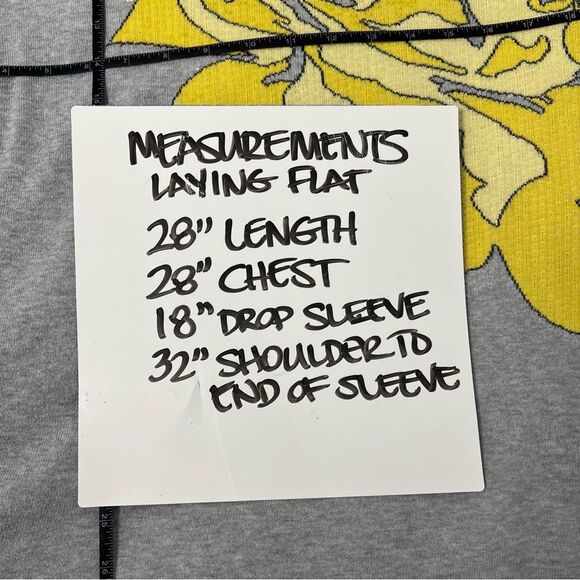 MEASUREMENTS
LAYING FLAT
28" LENGTH
28" CHEST
18" DROP SLEEVE
32" SHOULDER TO
END OF SLEEVE